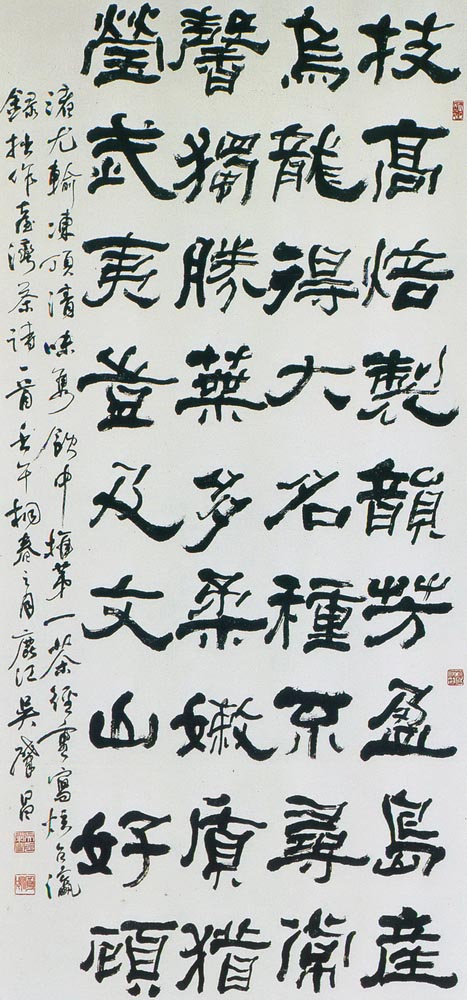 技高焙製韻芳盈島產
烏龍得大名種不尋常
馨獨勝葉多柔嫩質猶
瑩武夷豈及文山好顧
渚尤輸凍頂清味飲中推第一茶經重寫台瀛
錄拙作臺灣茶詩一首壬午桐春之月鹿江吳肇昌